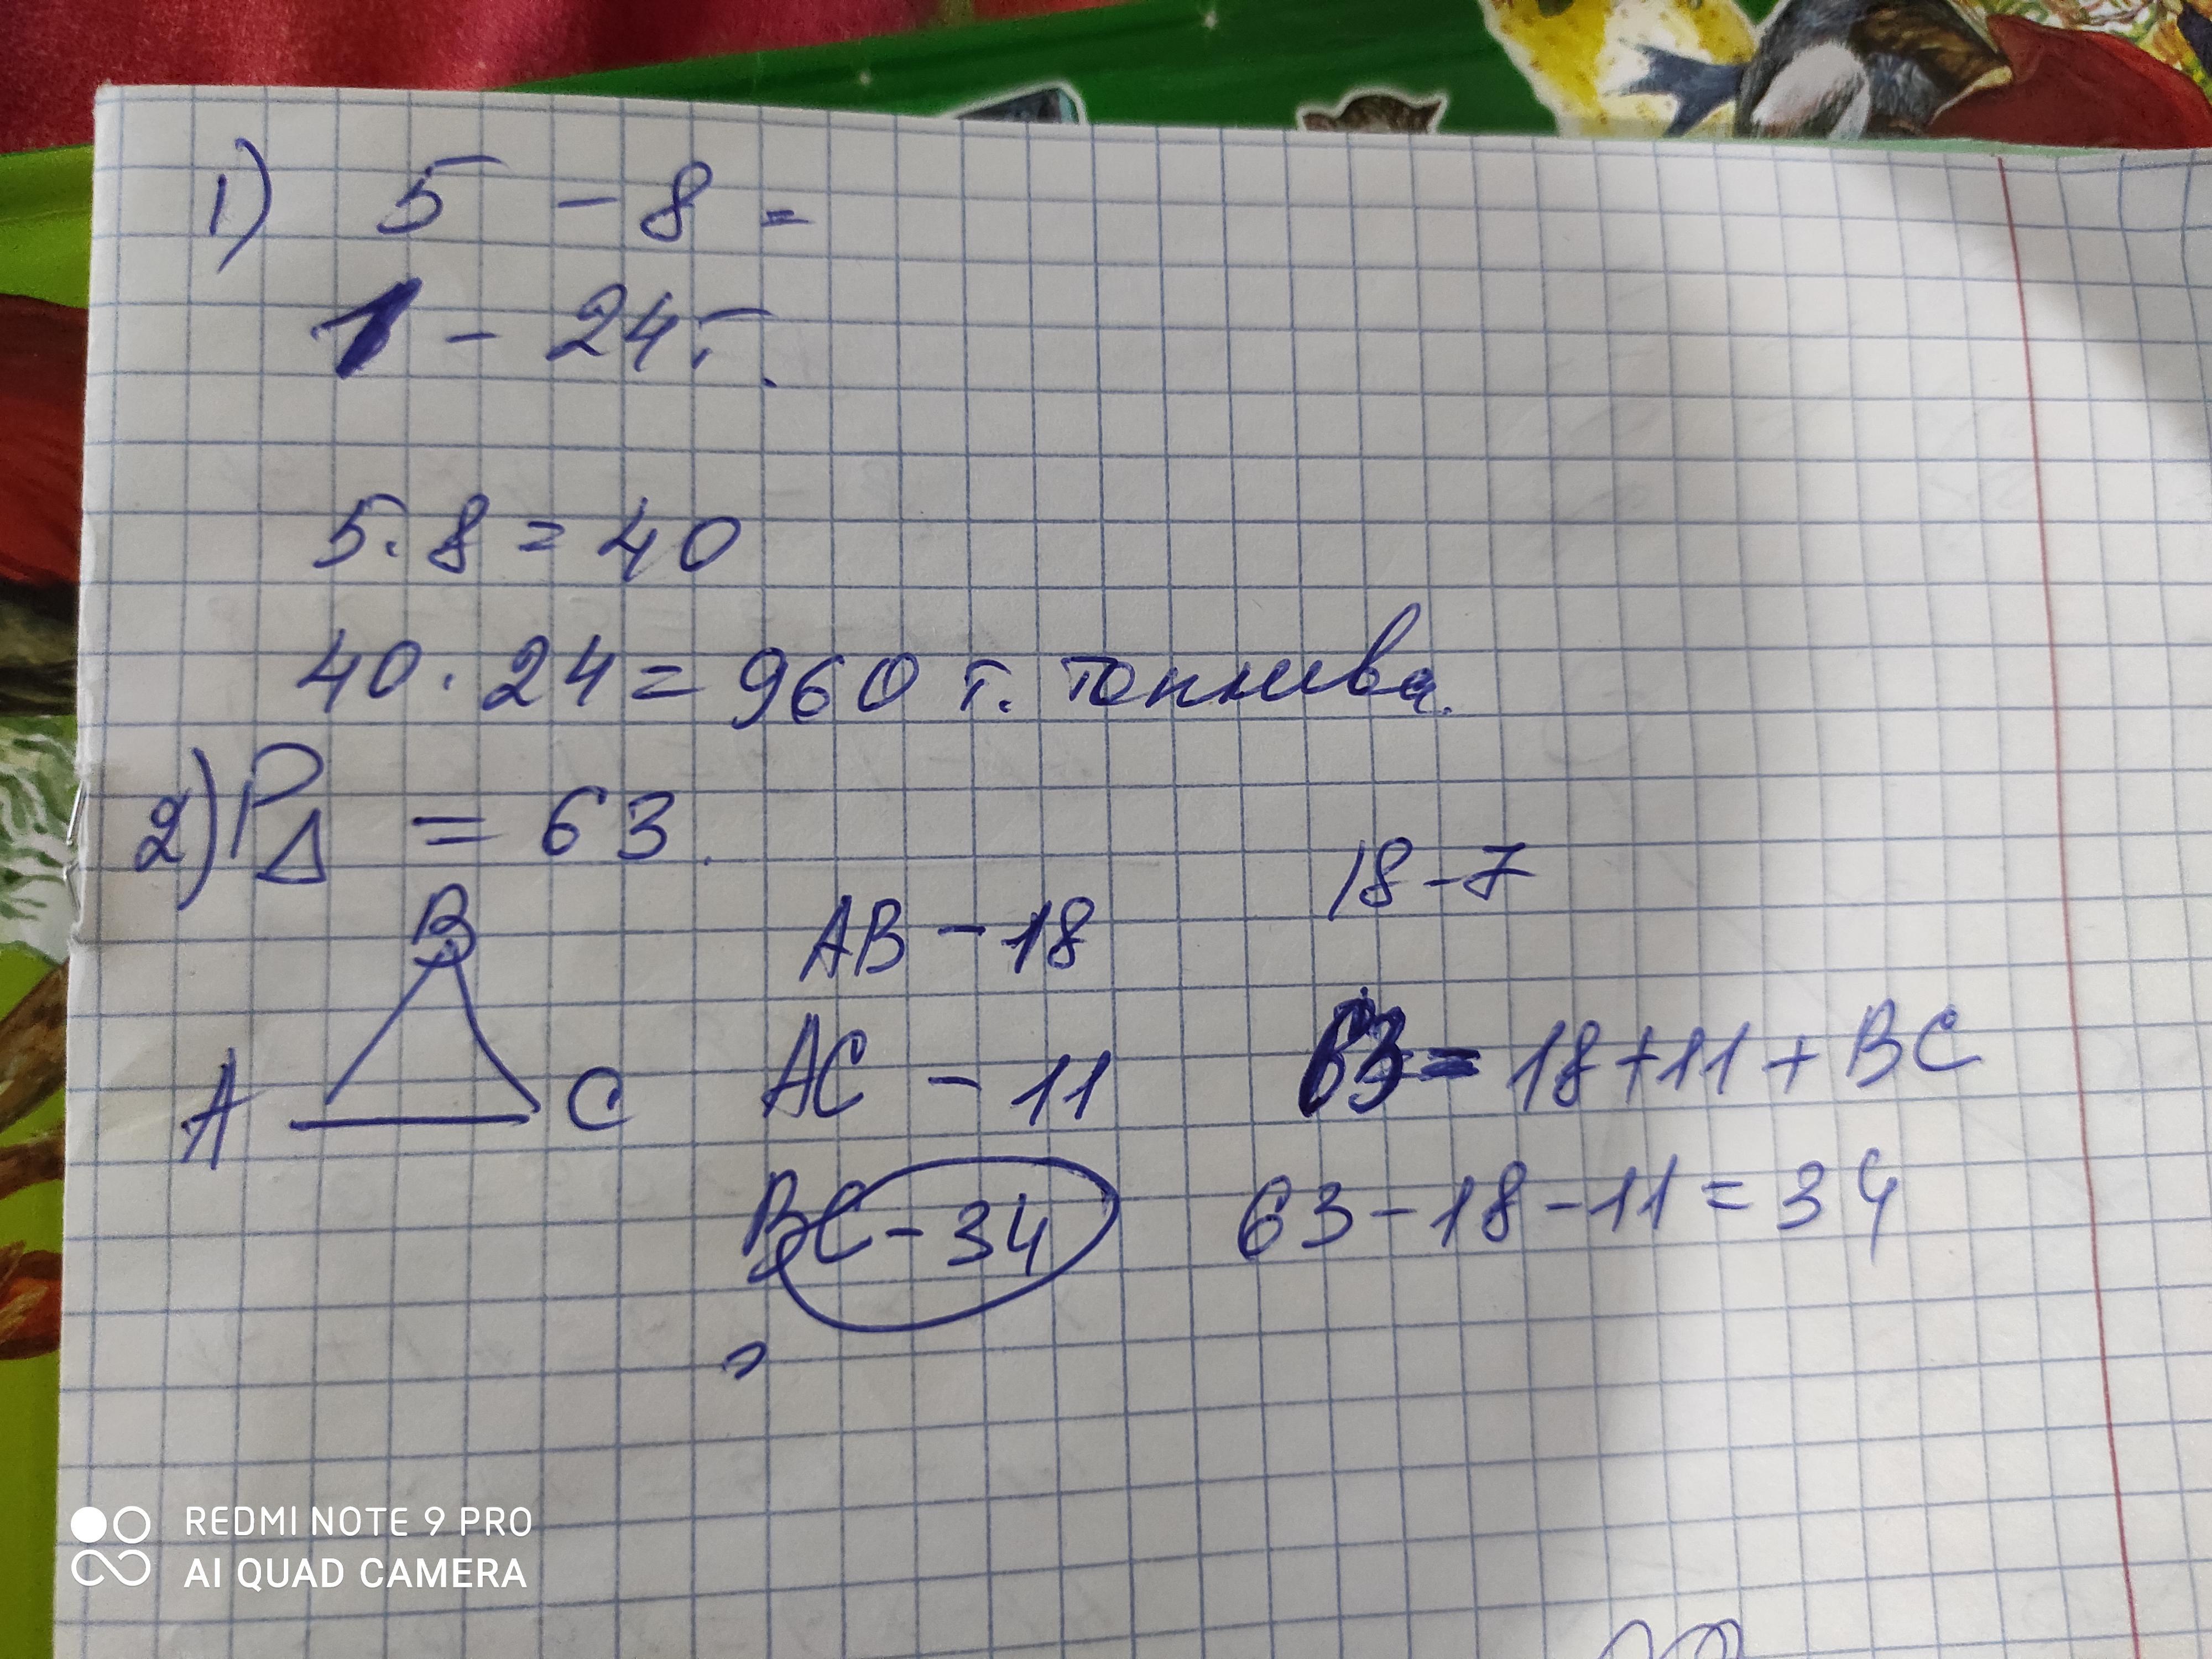 1) 5 - 8 =
1 - 24т.
5 · 8 = 40
40 · 24 = 960 т. топлива.
2) P△ = 63.
18 - 7
B
AB - 18
A
C
AC - 11
63 = 18 + 11 + BC
BC - 34
63 - 18 - 11 = 34
REDMI NOTE 9 PRO
AI QUAD CAMERA